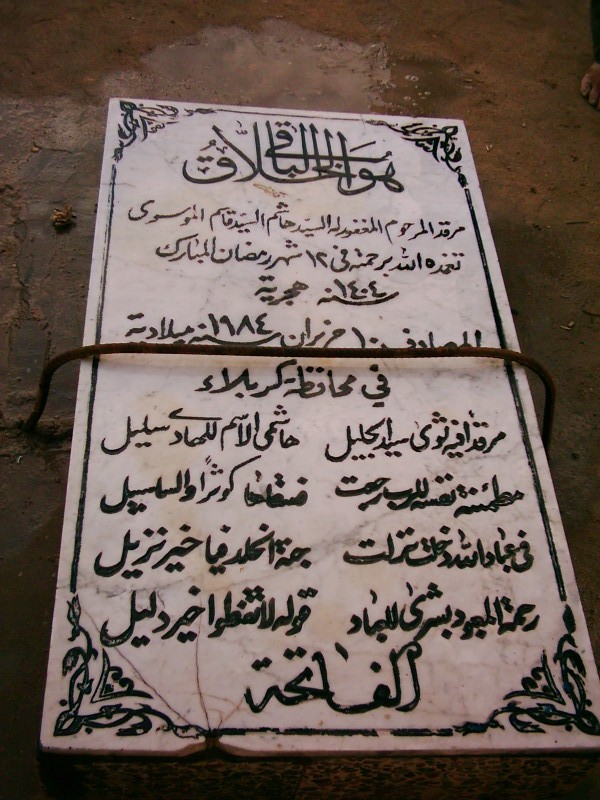 هو الخلاق الباقي
مرقد المرحوم المغفور له السيد هاشم السيد قاسم الموسوي
تغمده الله برحمته في ١٢ شهر رمضان المبارك
سنة ١٤٠٤ هجرية
المصادف ١٠ حزيران سنة ١٩٨٤ ميلادية
في محافظة كربلاء
مرقد فيه ثوى سيد الجليل هاشمي الاسم للهادي سليل
مطمئنة نفسه للرب رجعت فسقاها كوثرا والسلسبيل
في عباد الله دخلت نزلت جنة الخلد فيا خير نزيل
رحمة المعبود بشرى للعباد قوله لا تقنطوا خير دليل
الفاتحة